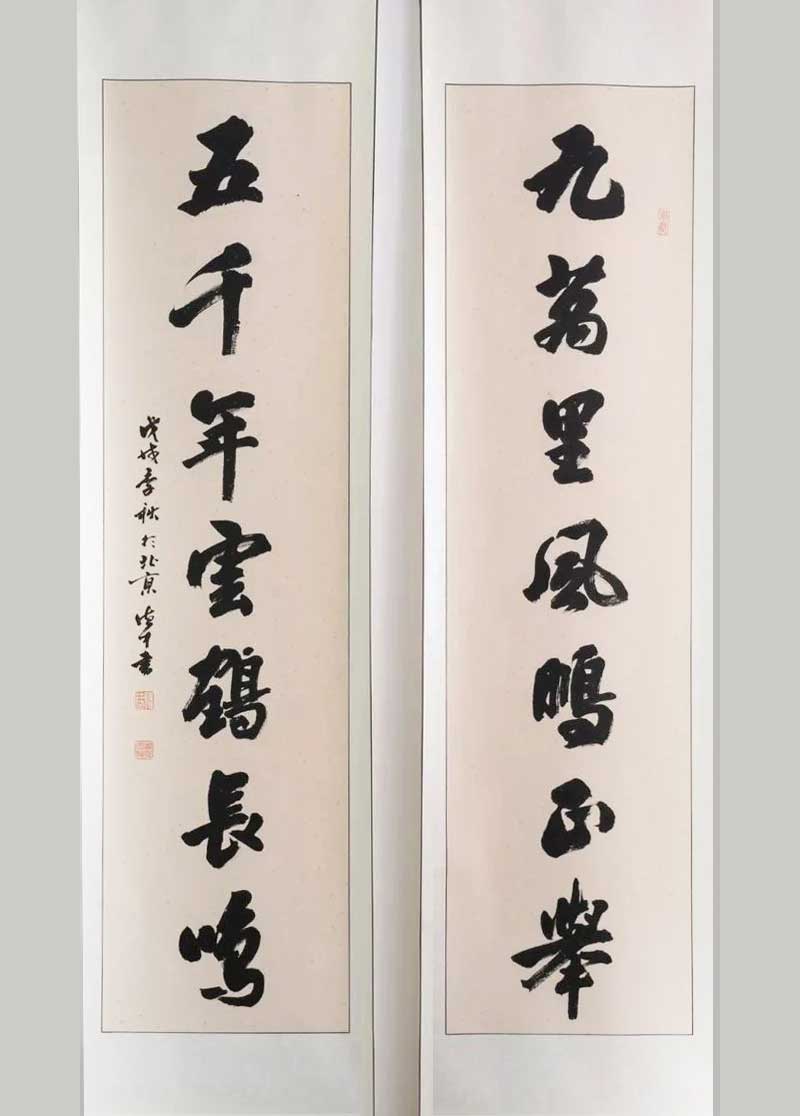 九萬里風鵬正舉
五千年雲鶴長鳴
戊戌季秋於北京
書